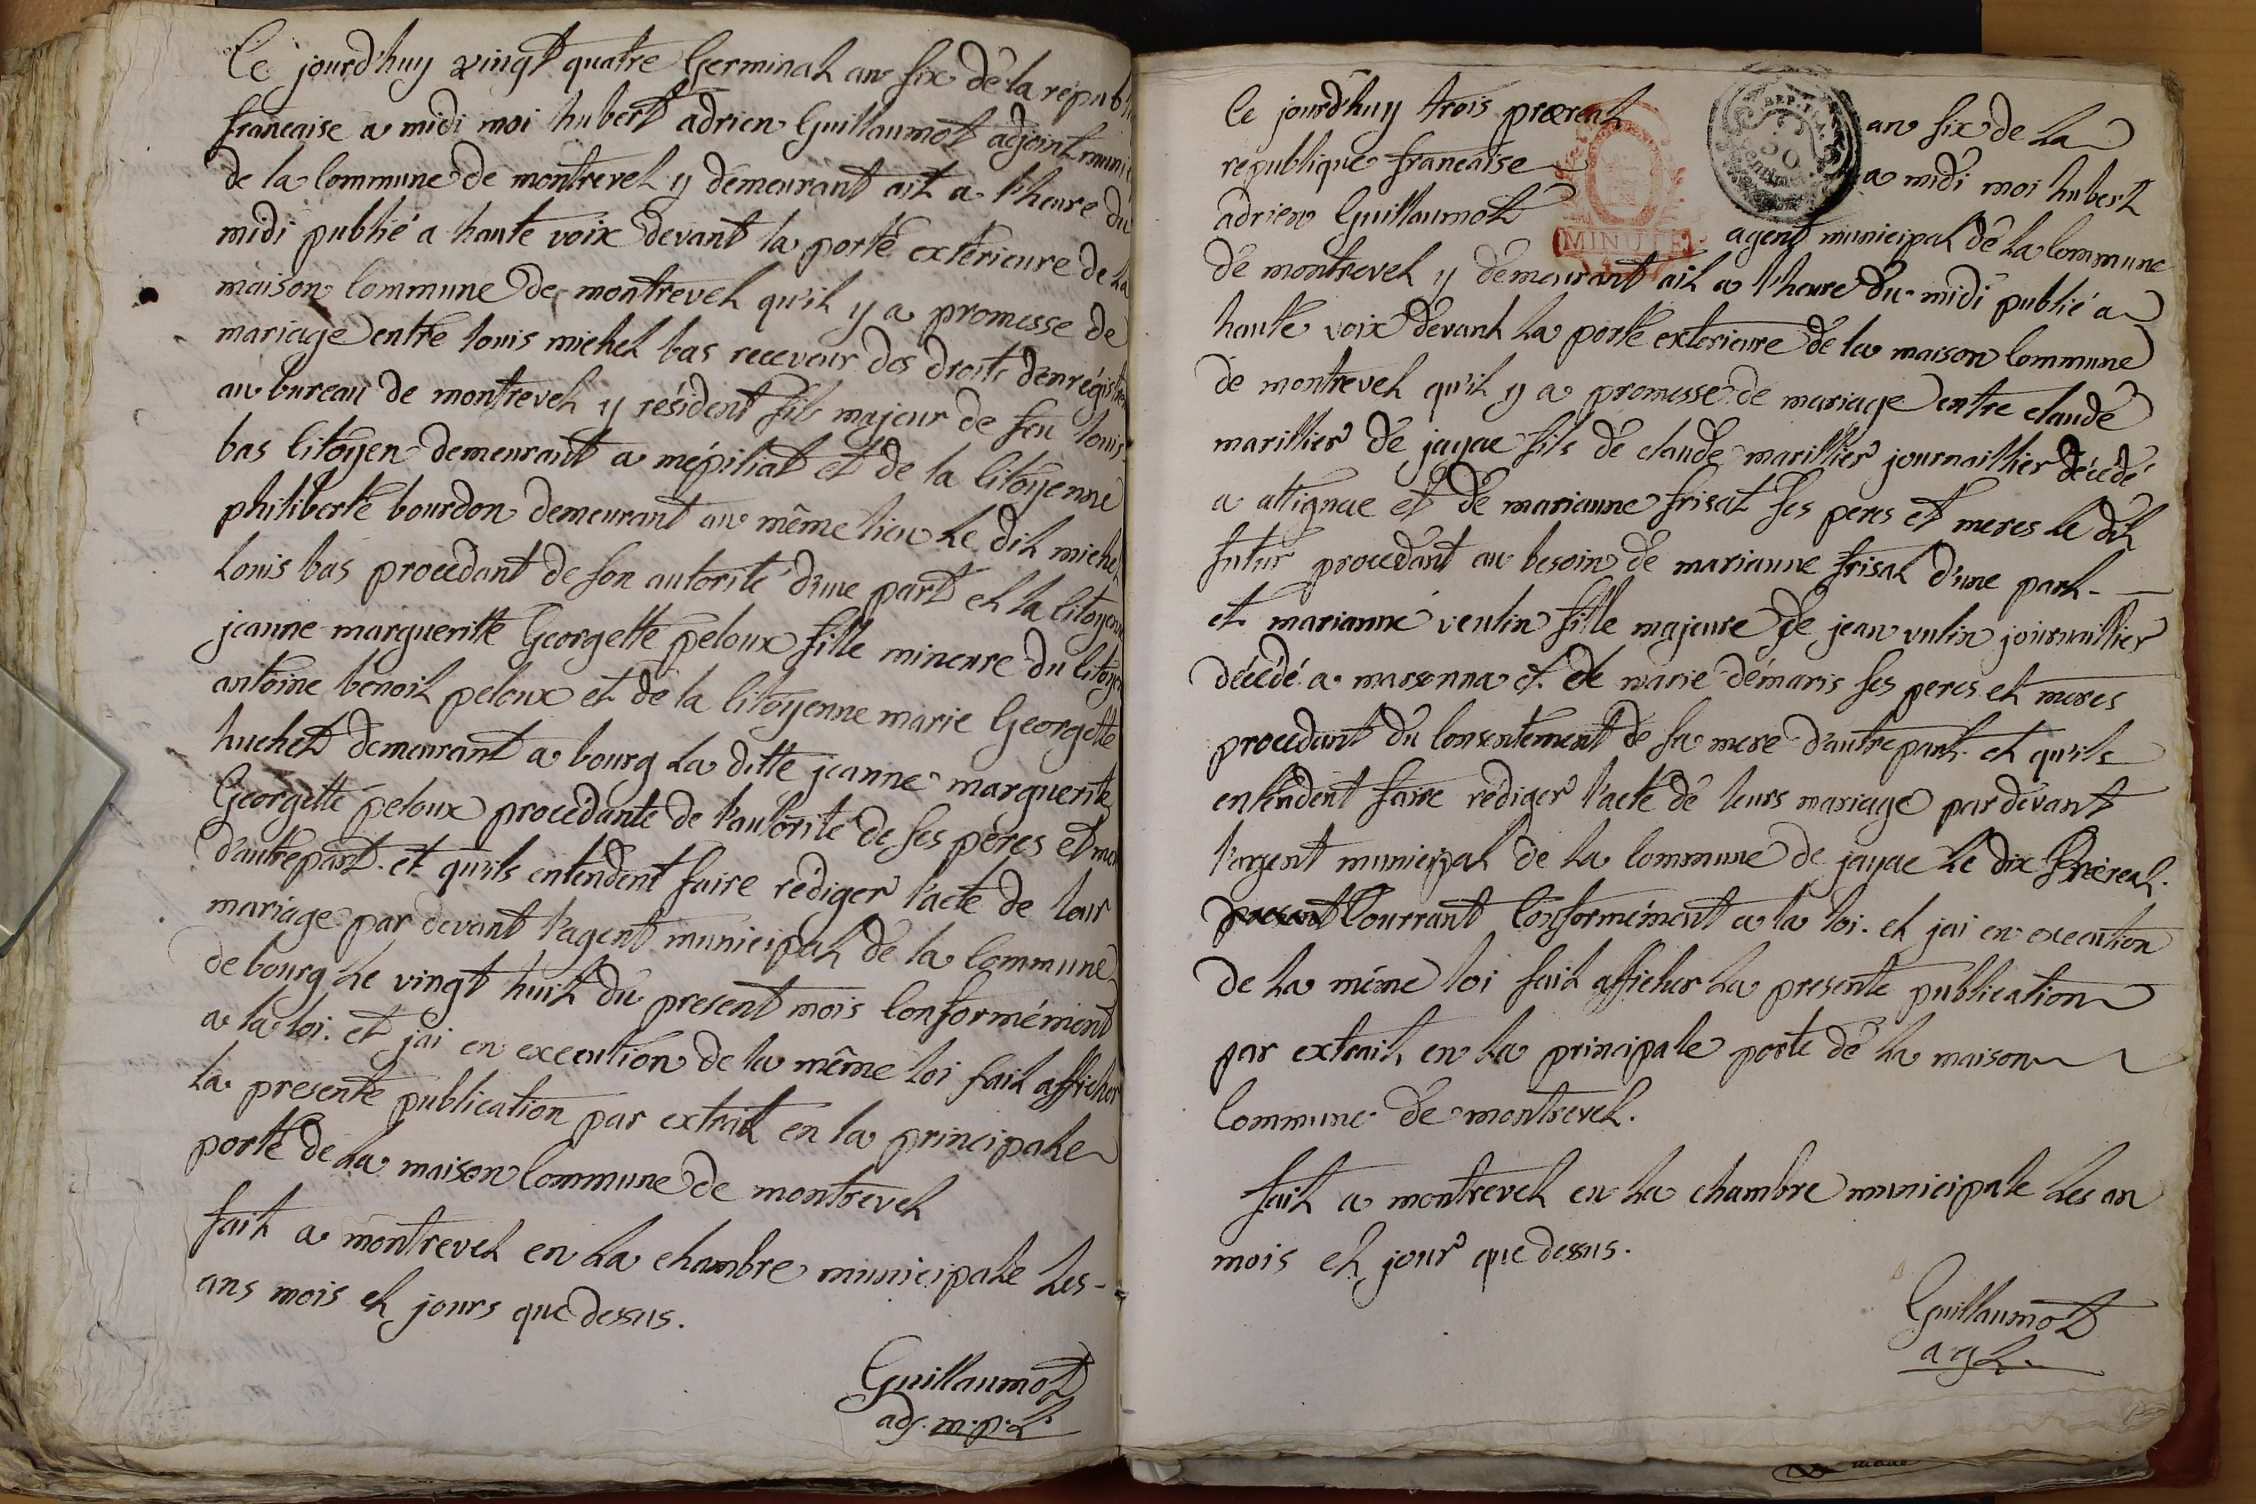 Ce jourd'huy vingt quatre Germinal an six de la republi
francaise a midi moi hubert adrien Guillaumot adjoint muni
de la Commune de montrevel y demeurant ait a l'heure du
midi publié a haute voix devant la porte exterieure de la
maison Commune de montrevel qu'il y a promesse de
mariage entre louis michel bas receveur des droits d'enregistre
au bureau de montrevel y résident fils majeur de feu louis
bas Citoyen demeurant a mépiliat et de la Citoyenne
philiberte bourdon demeurant au même lieu le dit michel
louis bas procedant de son autorité d'une part et la Citoyenne
jeanne margueritte Georgette peloux fille mineure du Citoyen
antoine benoit peloux et de la Citoyenne marie Georgette
huchet demeurant a bourg la ditte jeanne marguerite
Georgette peloux procedante de l'autorité de ses peres et mer
d'autrepart. et qu'ils entendent faire rédiger l'acte de leur
mariage par devant l'agent municipal de la Commune
de bourg le vingt huit du present mois Conformément
a la loi. et jai en execution de la même loi fait afficher
la presente publication par extrait en la principale
porte de la maison Commune de montrevel
fait a montrevel en la chambre municipale les
ans mois et jours que dessus.
Guillaumot
adj. m.p.l.
Ce jourd'huy trois prereal an six de la
republique francaise a midi moi hubert
adrien Guillaumot agent municipal de la Commune
de montrevel y demeurant ait a l'heure du midi publié a
haute voix devant la porte exterieure de la maison Commune
de montrevel qu'il y a promesse de mariage entre claude
marillier de jayac fils de claude marillier journaillier décédé
a attignac et de marianne frisat ses peres et meres le dit
futur procedant au besoin de marianne frisat d'une part
et marianne veulin fille majeure de jean vulin journaillier
décédé a marsonna et de marie démaris ses peres et meres
procedant du Consentement de sa mere d'autrepart. et qu'ils
entendent faire rédiger l'acte de leurs mariage par devant
l'agent municipal de la Commune de jayac le dix prereal.
present Courrant Conformément a la loi. et jai en execution
de la même loi fait afficher la presente publication
par extrait, en la principale porte de la maison
Commune de montrevel.
fait a montrevel en la chambre municipale les an
mois et jour que dessus.
Guillaumot
agt.
MINUTE
REP. FRA.
50
Centimes